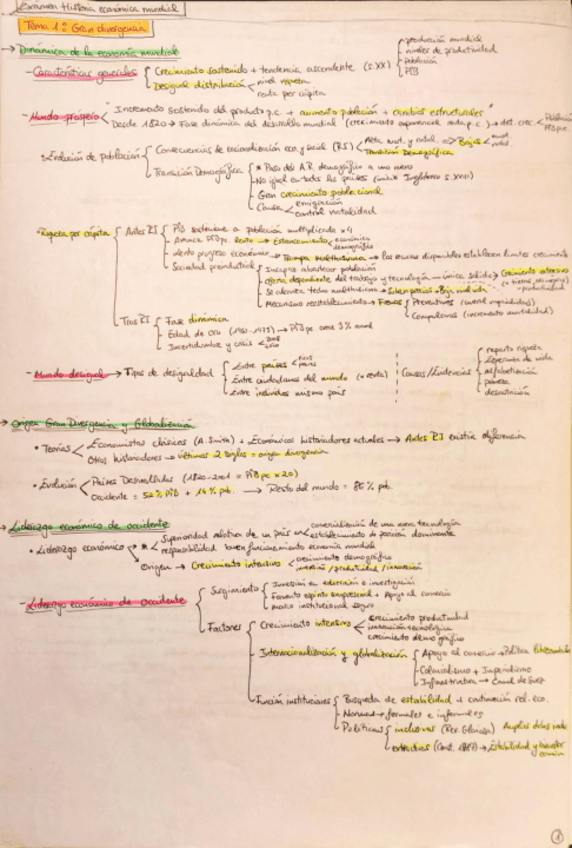 Examen Historia económica mundial
Tema 1: Gran divergencia
→ Dinámica de la economía mundial
- Características generales
Crecimiento sostenido + tendencia ascendente (s.XX)
producción mundial
niveles de productividad
Población
PIB
Desigual distribución
nivel riqueza
renta per cápita
- Mundo próspero
"Incremento sostenido del producto p.c. + aumento población + cambios estructurales"
Desde 1820 → Fase dinámica del desarrollo mundial (crecimiento exponencial renta p.c.)
Población
PIB p.c.
Evolución de población
Consecuencias de
eco. y social (RI)
Alta mort. y natal. => Bajas
mort.
natal.
Transición Demográfica
Transición Demográfica
Paso del A.R. demográfico a uno nuevo
No igual en todos los países (inicio Inglaterra s.XVIII)
Gran crecimiento poblacional
Causa
emigración
control natalidad
Riqueza per cápita
Antes RI
PIB
a población multiplicada x4
Avance PIBpc lento → Estancamiento
económico
demográfico
Lento progreso económico → Trampa malthusiana → los recursos disponibles establecen límites crecimiento
Sociedad preindustrial
Incapaz abastecer población
dependiente del trabajo y tecnología → única salida → Crecimiento extensivo
+ productividad
Mecanismo reestablecimiento → Frenos
Preventivos
Compulsivos (incremento mortalidad)
Tras RI
Fase dinámica
Edad de Oro (1950-1973) → PIBpc crece 3% anual
Incertidumbre y crisis
- Mundo desigual → Tipos de desigualdad
Entre países
ricos
pobres
Entre ciudadanos del mundo (+ renta)
Entre individuos mismo país
Causas/Evidencias
reparto riqueza
Esperanza de vida
alfabetización
pobreza
desnutrición
→ Origen Gran Divergencia y Globalización
• Teorías
Economistas clásicos (A. Smith) + Económicos historiadores actuales → Antes RI existía diferencia
Otros historiadores → últimos 2 siglos = origen divergencia
• Evolución
Países Desarrollados (1820-2001 = PIBpc x20)
Occidente = 52% PIB + 14% pob. → Resto del mundo = 86% pob.
→ Liderazgo económico de occidente
• Liderazgo económico
Superioridad relativa de un país en
comercialización de una nueva tecnología
establecimiento de posición dominante
responsabilidad buen funcionamiento economía mundial
Origen → Crecimiento intensivo
crecimiento demográfico
inversión/productividad/innovación
- Liderazgo económico de occidente
Surgimiento
Inversión en educación e investigación
Fomento espíritu empresarial + Apoyo al comercio
marco institucional seguro
Factores
Crecimiento intensivo
crecimiento productividad
innovación tecnológica
crecimiento demográfico
Internacionalización y globalización
Apoyo al comercio → Política
Colonialismo + Imperialismo
Infraestructura → Canal de Suez
Función instituciones
Búsqueda de estabilidad + continuación rel. eco.
Normas → formales e informales
Políticas
inclusivas (Rev. Gloriosa)
extractivas
→ Estabilidad y
1